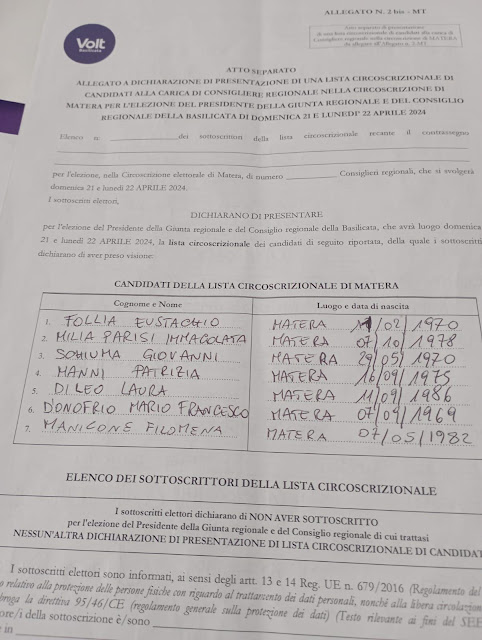 ALLEGATO N. 2 bis - MT
Atto separato di presentazione
di una lista circoscrizionale di candidati alla carica di
Consigliere regionale nella circoscrizione di MATERA
Volt
Basilicata
ATTO SEPARATO
ALLEGATO A DICHIARAZIONE DI PRESENTAZIONE DI UNA LISTA CIRCOSCRIZIONALE DI
CANDIDATI ALLA CARICA DI CONSIGLIERE REGIONALE NELLA CIRCOSCRIZIONE DI
MATERA PER L'ELEZIONE DEL PRESIDENTE DELLA GIUNTA REGIONALE E DEL CONSIGLIO
REGIONALE DELLA BASILICATA DI DOMENICA 21 E LUNEDI' 22 APRILE 2024
Elenco n. dei sottoscrittori della lista circoscrizionale recante il contrassegno
per l'elezione, nella Circoscrizione elettorale di Matera, di numero Consiglieri regionali, che si svolgerà
domenica 21 e lunedì 22 APRILE 2024.
I sottoscritti elettori,
DICHIARANO DI PRESENTARE
per l'elezione del Presidente della Giunta regionale e del Consiglio regionale della Basilicata, che avrà luogo domenica
21 e lunedì 22 APRILE 2024, la lista circoscrizionale dei candidati di seguito riportata, della quale i sottoscritti
dichiarano di aver preso visione:
CANDIDATI DELLA LISTA CIRCOSCRIZIONALE DI MATERA
Cognome e Nome Luogo e data di nascita
1. FOLLIA EUSTACHIO MATERA 11/02/1970
2. MILIA PARISI IMMACOLATA MATERA 07/10/1978
3. SCHIUMA GIOVANNI MATERA 29/05/1970
4. MANNI PATRIZIA MATERA 16/09/1975
5. DI LEO LAURA MATERA 11/09/1986
6. D'ONOFRIO MARIO FRANCESCO MATERA 07/09/1969
7. MANICONE FILOMENA MATERA 07/05/1982
ELENCO DEI SOTTOSCRITTORI DELLA LISTA CIRCOSCRIZIONALE
I sottoscritti elettori dichiarano di NON AVER SOTTOSCRITTO
per l'elezione del Presidente della Giunta regionale e del Consiglio regionale di cui trattasi
NESSUN'ALTRA DICHIARAZIONE DI PRESENTAZIONE DI LISTA CIRCOSCRIZIONALE DI CANDIDAT
I sottoscritti elettori sono informati, ai sensi degli artt. 13 e 14 Reg. UE n. 679/2016 (Regolamento del
o relativo alla protezione delle persone fisiche con riguardo al trattamento dei dati personali, nonché alla libera circolazion
broga la direttiva 95/46/CE (regolamento generale sulla protezione dei dati) (Testo rilevante ai fini del SEE
ore/i della sottoscrizione è/sono
in